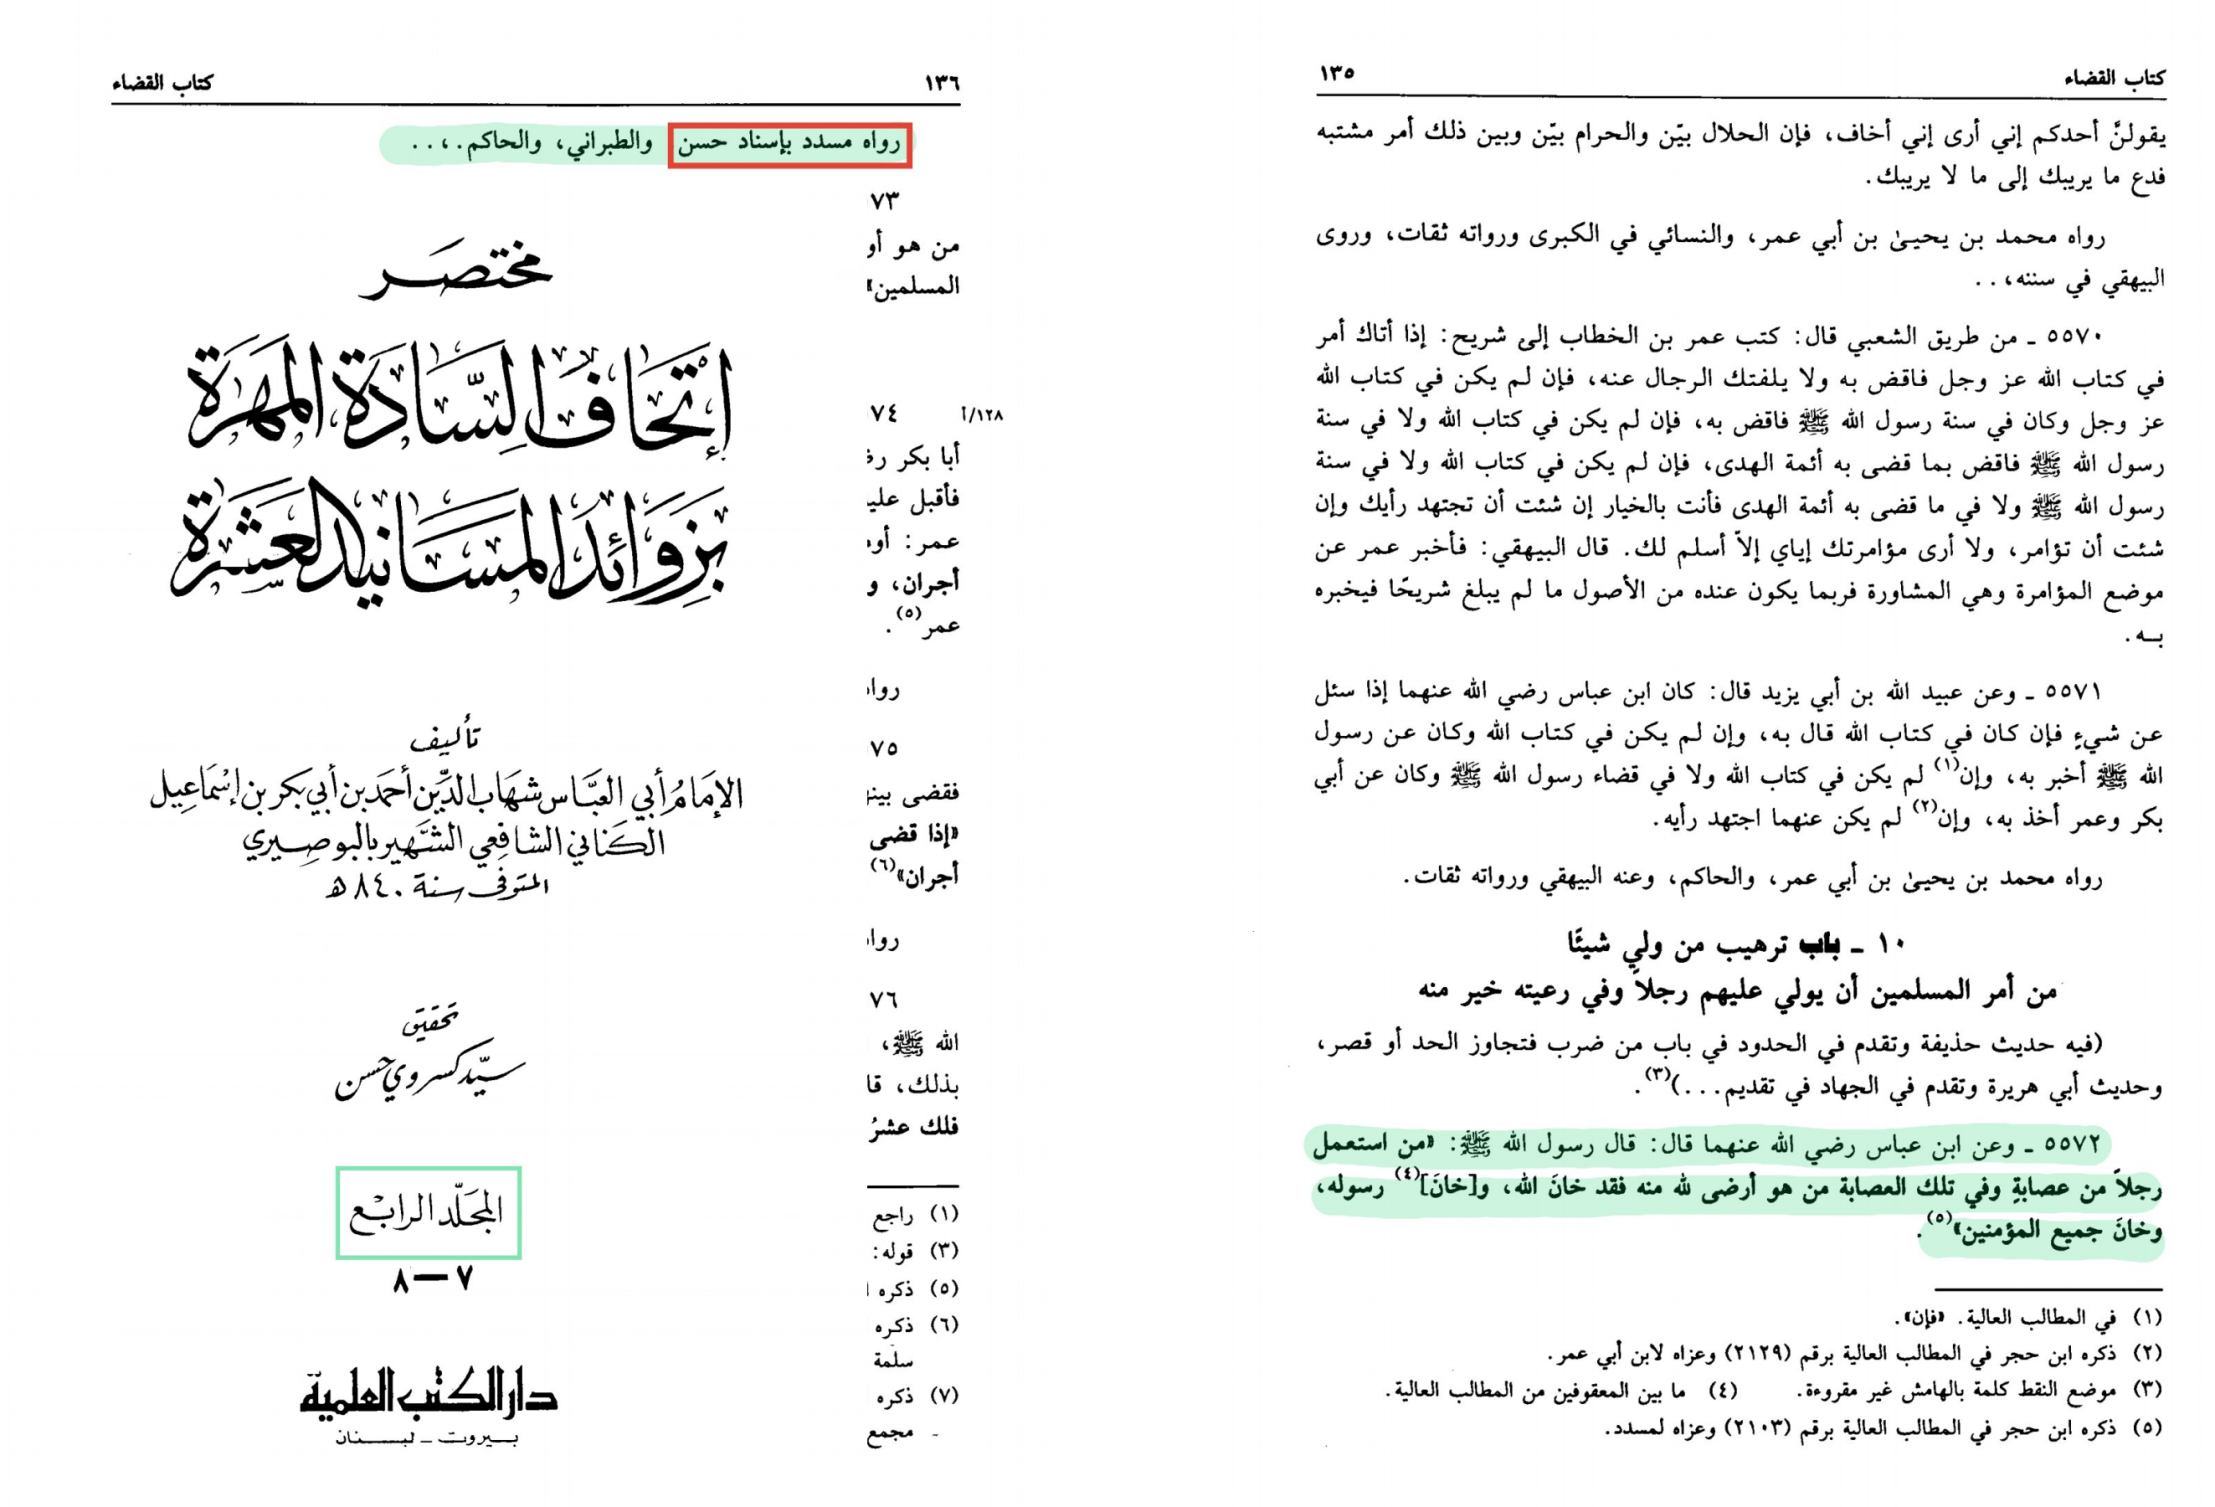 كتاب القضاء
١٣٥
يقولنَّ أحدكم إني أرى إني أخاف، فإن الحلال بيّن والحرام بيّن وبين ذلك أمر مشتبه
فدع ما يريبك إلى ما لا يريبك.
رواه محمد بن يحيىٰ بن أبي عمر، والنسائي في الكبرى ورواته ثقات، وروى
البيهقي في سننه، . .
٥٥٧٠ ـ من طريق الشعبي قال: كتب عمر بن الخطاب إلى شريح: إذا أتاك أمر
في كتاب الله عز وجل فاقض به ولا يلفتك الرجال عنه، فإن لم يكن في كتاب الله
عز وجل وكان في سنة رسول الله ﷺ فاقض به، فإن لم يكن في كتاب الله ولا في سنة
رسول الله ﷺ فاقض بما قضى به أئمة الهدى، فإن لم يكن في كتاب الله ولا في سنة
رسول الله ﷺ ولا في ما قضى به أئمة الهدى فأنت بالخيار إن شئت أن تجتهد رأيك وإن
شئت أن تؤامر، ولا أرى مؤامرتك إياي إلاّ أسلم لك. قال البيهقي: فأخبر عمر عن
موضع المؤامرة وهي المشاورة فربما يكون عنده من الأصول ما لم يبلغ شريحًا فيخبره
بـه.
٥٥٧١ ـ وعن عبيد الله بن أبي يزيد قال: كان ابن عباس رضي الله عنهما إذا سئل
عن شيءٍ فإن كان في كتاب الله قال به، وإن لم يكن في كتاب الله وكان عن رسول
الله ﷺ أخبر به، وإن(١) لم يكن في كتاب الله ولا في قضاء رسول الله ﷺ وكان عن أبي
بكر وعمر أخذ به، وإن(٢) لم يكن عنهما اجتهد رأيه.
رواه محمد بن يحيىٰ بن أبي عمر، والحاكم، وعنه البيهقي ورواته ثقات.
١٠ ـ باب ترهيب من ولي شيئًا
من أمر المسلمين أن يولي عليهم رجلاً وفي رعيته خير منه
(فيه حديث حذيفة وتقدم في الحدود في باب من ضرب فتجاوز الحد أو قصر،
وحديث أبي هريرة وتقدم في الجهاد في تقديم...)(٣).
٥٥٧٢ ـ وعن ابن عباس رضي الله عنهما قال: قال رسول الله ﷺ: «من استعمل
رجلاً من عصابةٍ وفي تلك العصابة من هو أرضى لله منه فقد خانَ الله، و[خانَ](٤) رسوله،
وخانَ جميع المؤمنين»(٥).
(١) في المطالب العالية. «فإن».
(٢) ذكره ابن حجر في المطالب العالية برقم (٢١٢٩) وعزاه لابن أبي عمر.
(٣) موضع النقط كلمة بالهامش غير مقروءة. (٤) ما بين المعقوفين من المطالب العالية.
(٥) ذكره ابن حجر في المطالب العالية برقم (٢١٠٣) وعزاه لمسدد.
١٣٦
كتاب القضاء
رواه مسدد بإسناد حسن والطبراني، والحاكم.،..
٧٣
من هو أو
المسلمين»
٧٤
١٢٨/أ
أبا بكر رض
فأقبل علي
عمر: أو
أجران، و
عمر(٥).
روا
٧٥
فقضى بين
«إذا قضى
أجران»(٦)
روا
٧٦
الله ﷺ،
بذلك، قا
فلك عشرُ
(١) راجع
(٣) قوله:
(٥) ذكره ا
(٦) ذكره
سلمة
(٧) ذكره
- مجمع
مختصر
إتحاف السادة المهرة
بزوائد المسانيد العشرة
تأليف
الإمام أبي العباس شهاب الدين أحمد بن أبي بكر بن إسماعيل
الكناني الشافعي الشهير بالبوصيري
المتوفى سنة ٨٤٠ هـ
تحقيق
سيّد كسروي حسن
المجلّد الرابع
٧ — ٨
دار الكتب العلمية
بيروت ـ لبنان